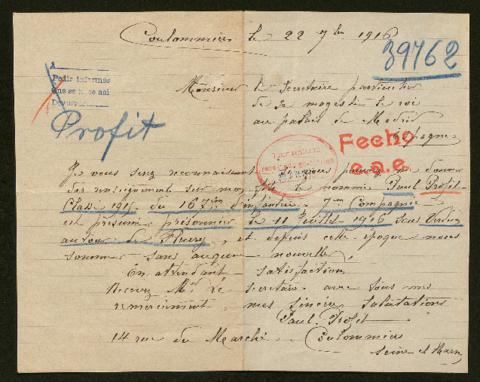 Coulommiers le 22 7bre 1916
39762
Pedir informes
Profit
Monsieur le Secrétaire particulier
de sa magesté le roi
au palais de Madrid
Espagne
Fecho
e.a.e.
Je vous serez reconnaissant si vous pouvez me donner
des renseignement sur mon fils le nommé Paul Profit
Classe 1915 du 167em d'infanterie 7em Compagnie
est présumé prisonnier le 11 juillet 1916 sous Verdun
autour de Fleury, et depuis cette époque nous
sommes sans aucune nouvelle,
En attendant satisfaction,
Recevez Mr le Secrétaire avec tous mes
remerciment, mes sincère salutations
Paul Profit
14 rue du Marché Coulommiers
Seine et Marne